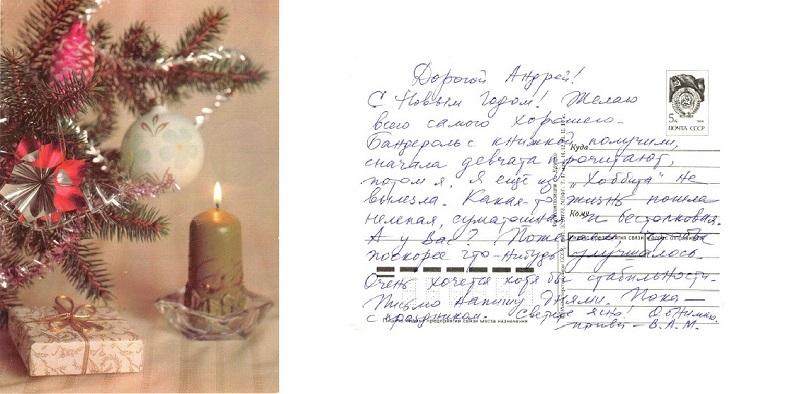 Дорогой Андрей!
С Новым Годом! Желаю
всего самого хорошего.
Бандероль с книжкой получили,
сначала девчата прочитают,
потом я. Я ещё из "Хоббита" не
вылезла. Какая-то жизнь пошла
нелепая, суматошная и бестолковая.
А у Вас? Пожелаю, бы
поскорее что-нибудь улучшалось.
Очень хочется хотя бы стабильности.
Письмо напишу днями. Пока —
с праздником. Светлане янв! Обнимаю.
привет — В.А.М.
5к
ПОЧТА СССР
Куда
Кому
предприятия связи места назначения